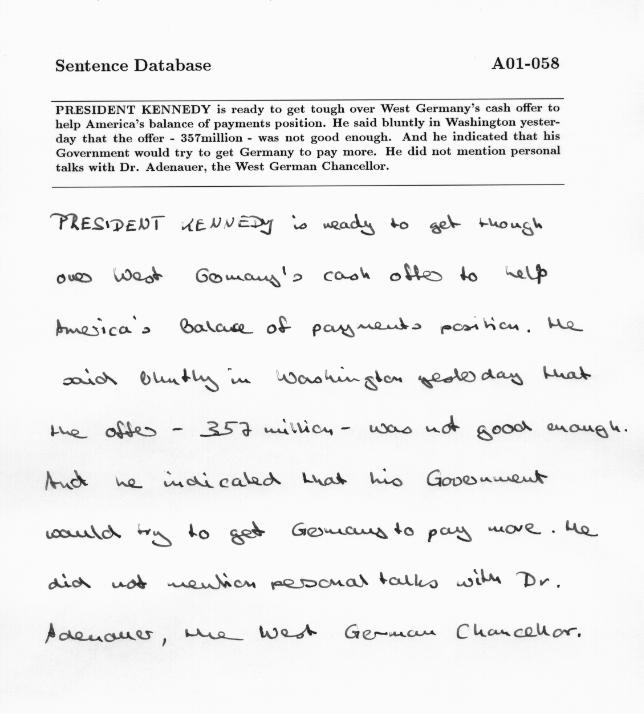 Sentence Database A01-058
PRESIDENT KENNEDY is ready to get tough over West Germany's cash offer to
help America's balance of payments position. He said bluntly in Washington yester-
day that the offer - 357million - was not good enough. And he indicated that his
Government would try to get Germany to pay more. He did not mention personal
talks with Dr. Adenauer, the West German Chancellor.
PRESIDENT KENNEDY is ready to get though
over West Germany's cash offer to help
America's Balance of payments position. He
said bluntly in Washington yesterday that
the offer - 357 million - was not good enough.
And he indicated that his Government
would try to get Germany to pay more. He
did not mention personal talks with Dr.
Adenauer, the West German Chancellor.